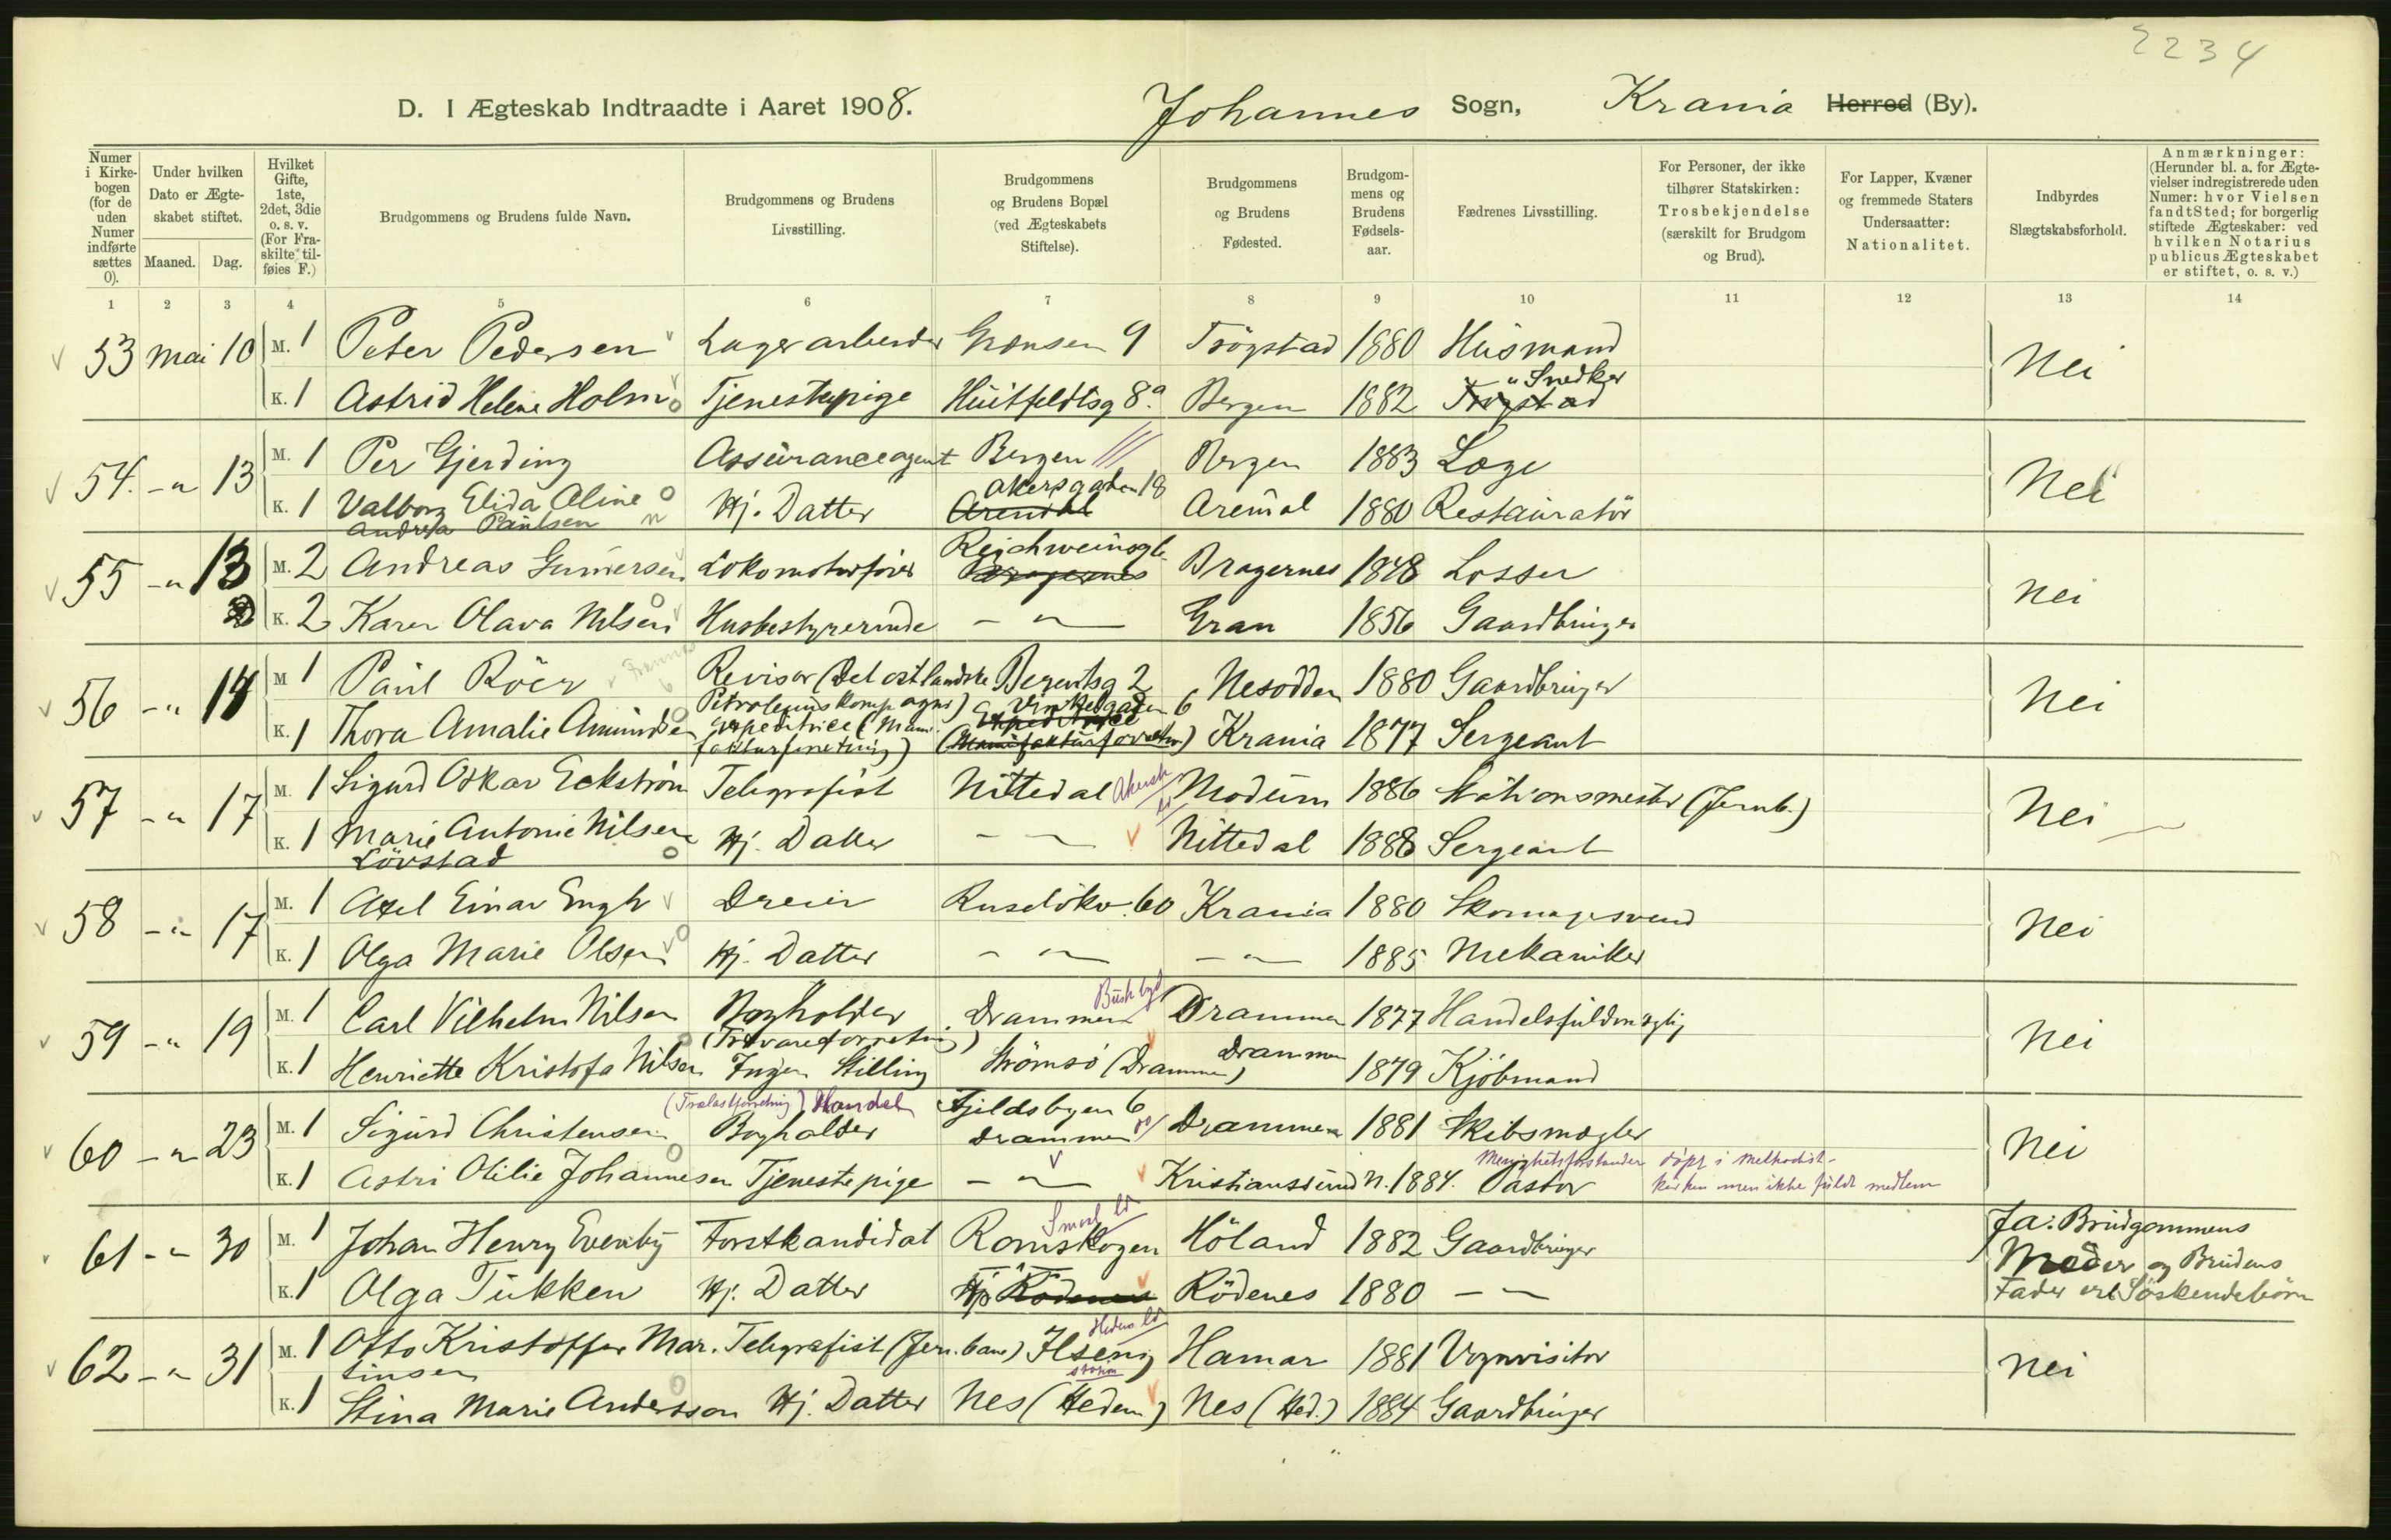 2234
D. I Ægteskab Indtraadte i Aaret 1908. Johannes Sogn, Krania Herred (By).
Numer i Kirkebogen (for de uden Numer indførte sættes 0).
Under hvilken Dato er Ægteskabet stiftet.
Maaned. Dag.
Hvilket Gifte, 1ste, 2det, 3die o. s. v. (For Fraskilte tilføies F.)
Brudgommens og Brudens fulde Navn.
Brudgommens og Brudens Livsstilling.
Brudgommens og Brudens Bopæl (ved Ægteskabets Stiftelse).
Brudgommens og Brudens Fødested.
Brudgommens og Brudens Fødselsaar.
Fædrenes Livsstilling.
For Personer, der ikke tilhører Statskirken: Trosbekjendelse (særskilt for Brudgom og Brud).
For Lapper, Kvæner og fremmede Staters Undersaatter: Nationalitet.
Indbyrdes Slægtskabsforhold.
Anmærkninger: (Herunder bl. a. for Ægtevielser indregistrerede uden Numer: hvor Vielsen fandt Sted; for borgerlig stiftede Ægteskaber: ved hvilken Notarius publicus Ægteskabet er stiftet, o. s. v.)
1 2 3 4 5 6 7 8 9 10 11 12 13 14
53 mai 10 M. 1 Peter Pedersen Lagerarbeider Grænsen 9 Trögstad 1880 Husmand Nei
K. 1 Astrid Helene Holm Tjenestepige Huitfeldtsg 8a Bergen 1882 Trögstad Snedker
54. -"- 13 M. 1 Per Gjerding Assuranceagent Bergen Bergen 1883 Læge Nei
K. 1 Valborg Elida Aline Andrea Paulsen Hj. Datter Arendal Akersgaden 18 Arendal 1880 Restauratör
55 -"- 13 M. 2 Andreas Gundersen Lokomotivfører Reichweinsgt. Bragernes Bragernes 1848 Losser Nei
K. 2 Karen Olava Nilsen Husbestyrerinde -"- Gran 1856 Gaardbruger
56 -"- 14 M 1 Paul Röer Revisor (Det østlandske Petroleumskompagni) Bergentsg 2 Nesodden 1880 Gaardbruger Nei
K. 1 Thora Amalie Amundsen Expeditrice (Manufakturforretning) Vinkelgaden 6 Expeditrice (Manufakturforretn.) Krania 1877 Sergeant
57 -"- 17 M. 1 Sigurd Oskar Eckström Telegrafist Nittedal Akersh Modum 1886 Stationsmester (Jernb.) Nei
K. 1 Marie Antonie Nilsen Lövstad Hj. Datter -"- Nittedal 1888 Sergeant
58 -"- 17 M. 1 Axel Einar Engh Dreier Ruselökv. 60 Krania 1880 Skomagersvend Nei
K. 1 Olga Marie Olsen Hj. Datter -"- -"- 1885 Mekaniker
59 -"- 19 M. 1 Carl Vilhelm Nilsen Bogholder (Trævareforretning) Drammen Buskbyd Drammen 1877 Handelsfuldmægtig Nei
K. 1 Henriette Kristofa Nilsen Ingen Stilling Strömsö (Drammen) Drammen 1879 Kjöbmand
60 -"- 23 M. 1 Sigurd Christensen (Trælastforretning) Handel Bogholder Fjeldsbyen 6 Drammen Drammen 1881 Skibsmægler Nei
K. 1 Astri Otilie Johannesen Tjenestepige -"- Kristianssund N. 1884. Menighetsforstander Pastor döpt i Methodistkirken men ikke fuldt medlem
61 -"- 30 M. 1 Johan Henry Evenby Forstkandidat Römskogen Smaal Höland 1882 Gaardbruger Ja: Brudgommens Moder og Brudens Fader ere Söskendebörn
K. 1 Olga Tukken Hj. Datter Rödenes Rödenes 1880 -"-
62 -"- 31 M. 1 Otto Kristoffer Martinsen Telegrafist (Jernbane) Ilseng station Hamar 1881 Vognvisitør Nei
K. 1 Stina Marie Andersson Hj. Datter Nes (Hedem) Nes (Hed.) 1884 Gaardbruger